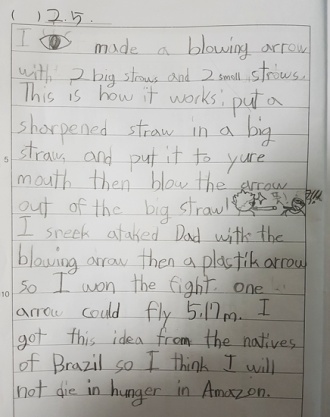 ( ) 2.5.
I made a blowing arrow
with 2 big straws and 2 small strows.
This is how it works: put a
sharpened straw in a big
straw, and put it to yure
5
mouth then blow the arrow
out of the big straw!
I sneek ataked Dad with the
blowing arrow then a plastik arrow
so I won the fight. one
10
arrow could fly 5.17m. I
got this idea from the natives
of Brazil so I think I will
not die in hunger in Amazon.